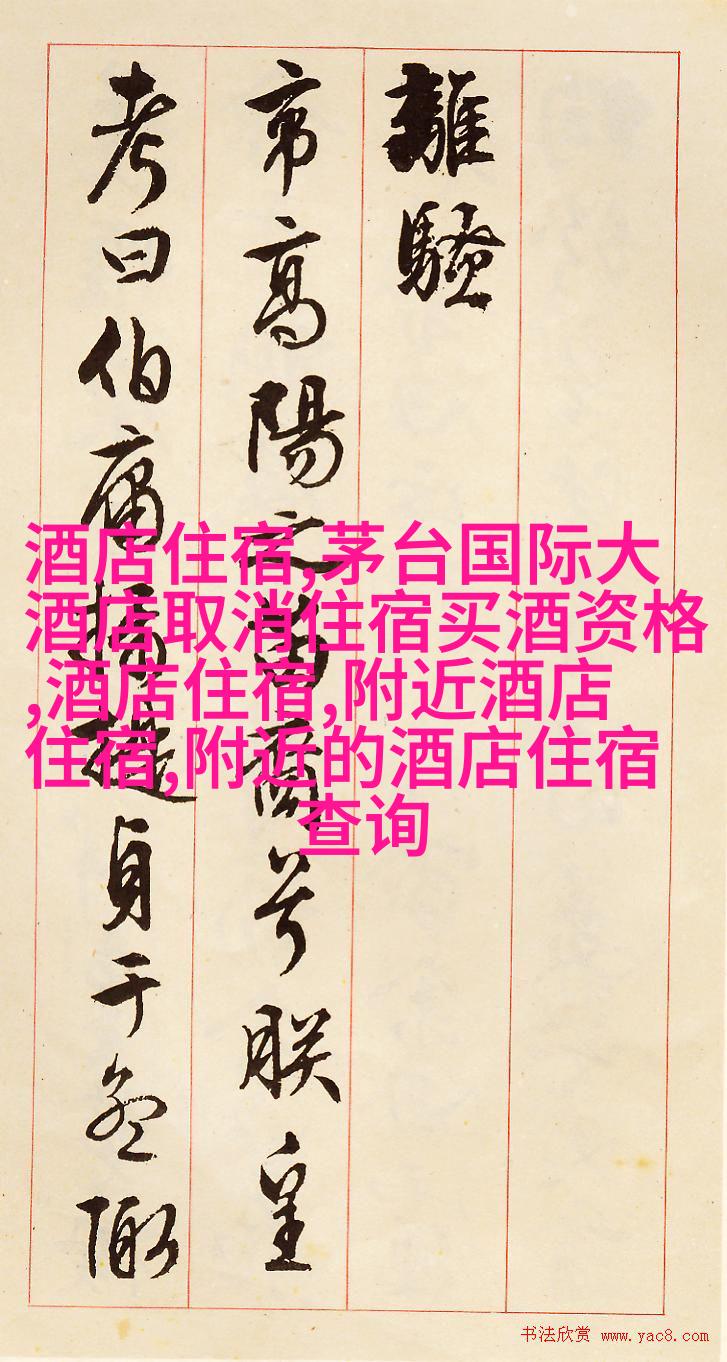 離騷
帝高陽之苗裔兮朕皇
考曰伯庸攝提貞于孟陬
酒店住宿,茅台国际大
酒店取消住宿买酒资格
,酒店住宿,附近酒店
住宿,附近的酒店住宿
查询
书法欣赏 www.yac8.com